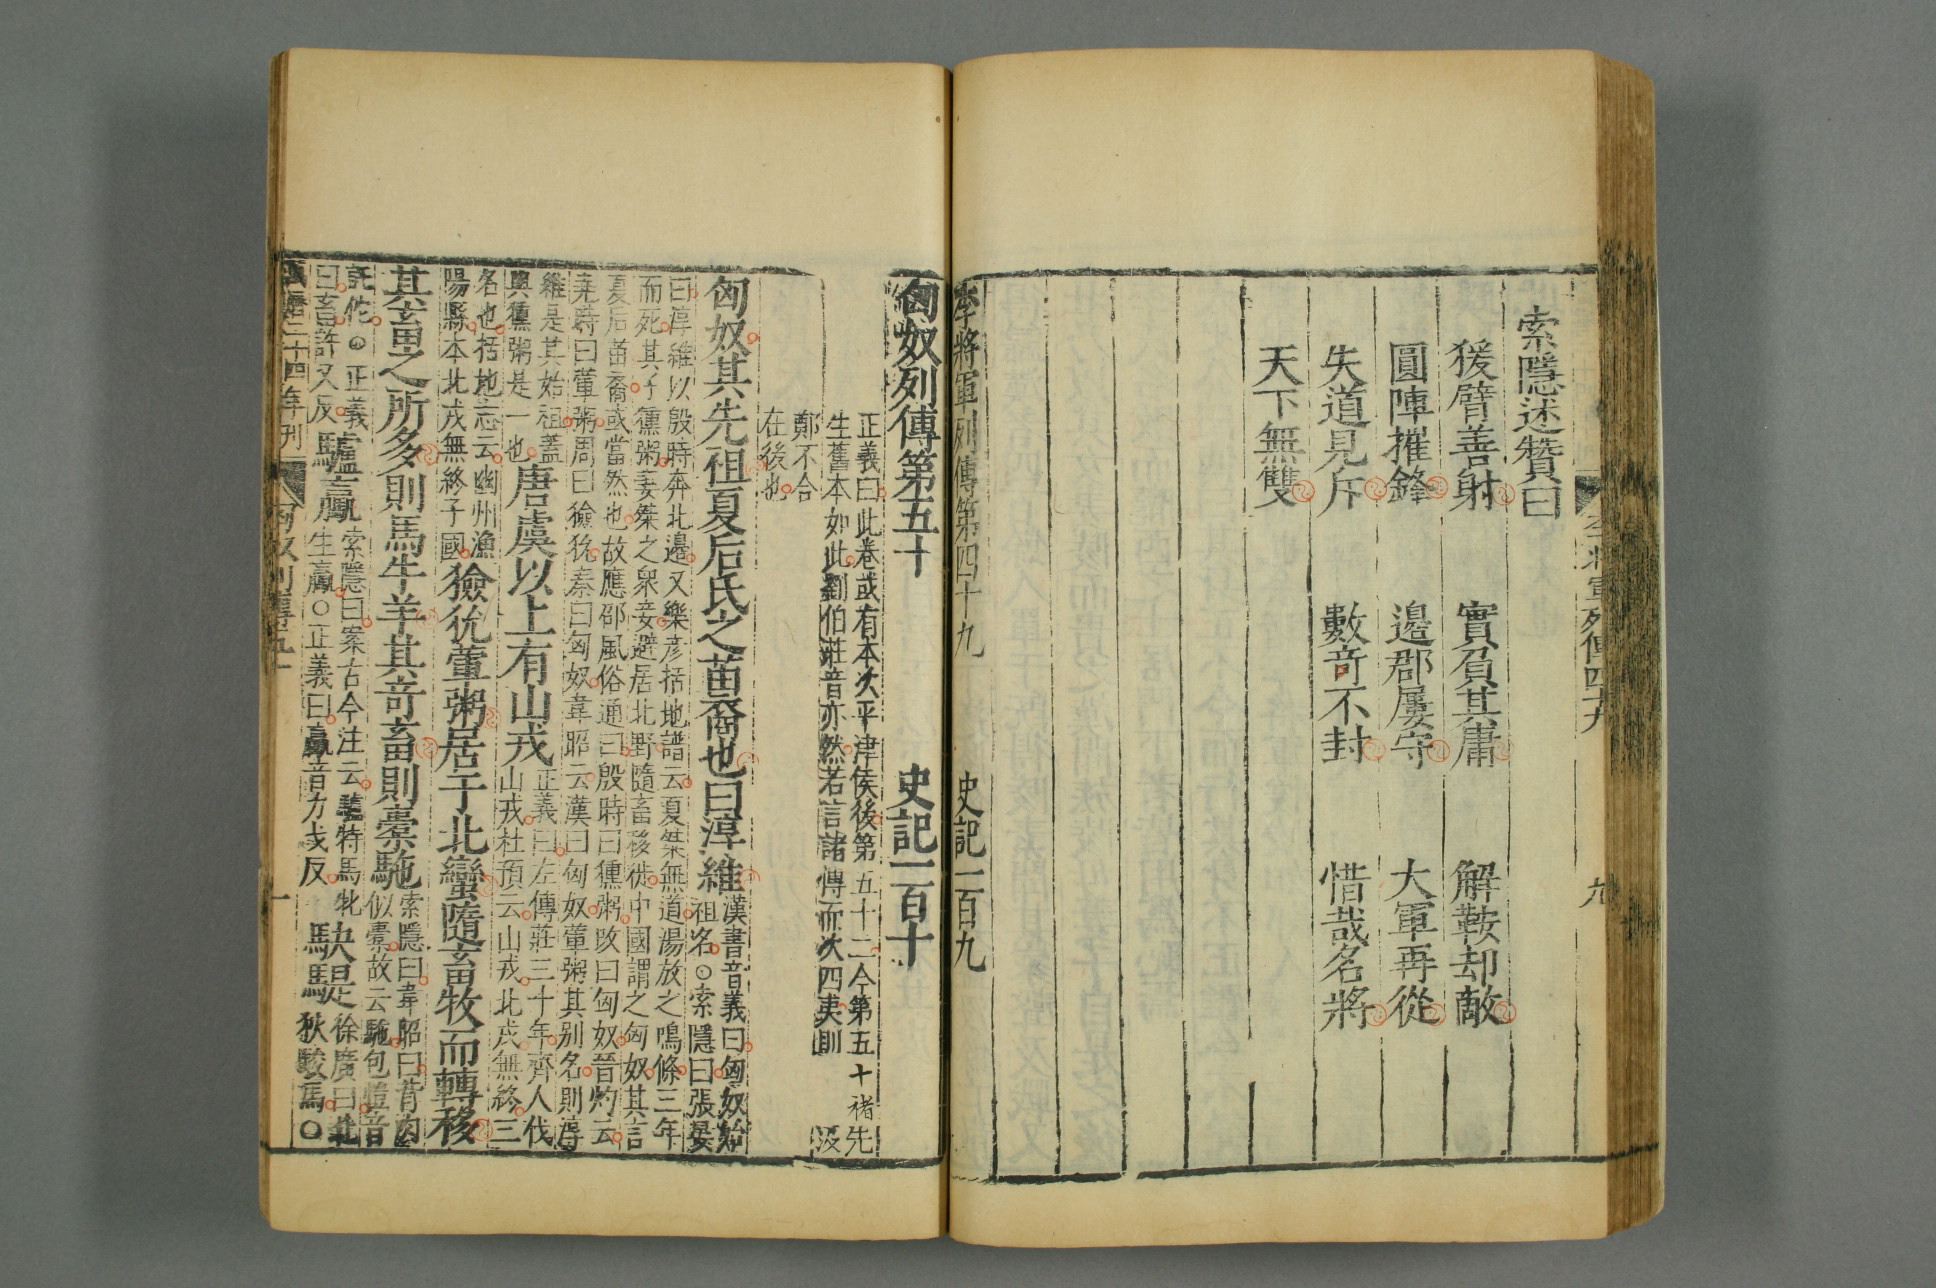 索隱述贊曰
猨臂善射　實負其庸　解鞍却敵
圓陣摧鋒　邊郡屢守　大軍再從
失道見斥　數奇不封　惜哉名將
天下無雙
李將軍列傳第四十九　史記一百九
匈奴列傳第五十　史記一百十
正義曰此卷或有本次平津侯後第五十二今第五十者先
生舊本如此劉伯莊音亦然若言諸傳而次四夷則
鄭不合
在後也
匈奴其先祖夏后氏之苗裔也曰淳維漢書音義曰匈奴始
祖名○索隱曰張晏
曰淳維以殷時奔北邊又樂彦括地譜云夏桀無道湯放之鳴條三年
而死其子獯粥妻桀之衆妾避居北野隨畜移徙中國謂之匈奴其言
夏后苗裔或當然也故應邵風俗通曰殷時曰獯粥改曰匈奴晉灼云
堯時曰葷粥周曰獫狁秦曰匈奴韋昭云漢曰匈奴葷粥其别名則淳
維是其始祖蓋
與獯粥是一也唐虞以上有山戎正義曰左傳莊三十年齊人伐
山戎杜預云山戎北戎無終三
名也括地志云幽州漁
陽縣本北戎無終子國獫狁葷粥居于北蠻隨畜牧而轉移
其畜之所多則馬牛羊其奇畜則橐駞索隱曰韋昭曰背肉
似橐故云駞包愷音
託佗○正義
曰畜許又反驢驘索隱曰案古今注云驢特馬牝
生驘○正義曰驘音力戈反駃騠徐廣曰北
狄駿馬○